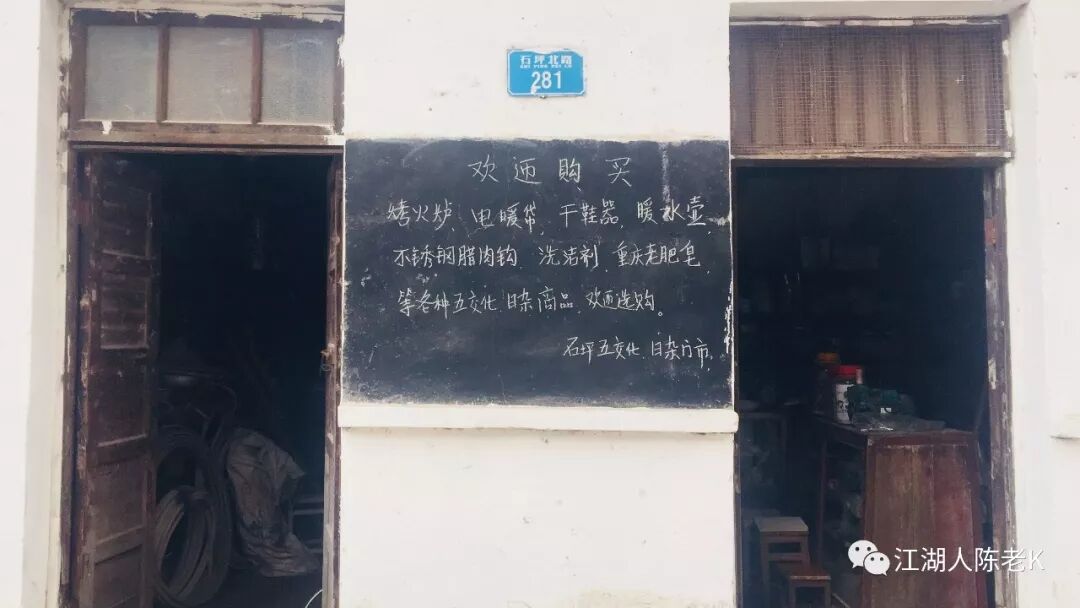 石坪北路
281
欢迊購买
烤火炉、电暖袋、干鞋器、暖水壶、
不锈钢腊肉钩、洗洁剂、重庆老肥皂,
等各种五交化、日杂商品,欢迊选购。
石坪五交化、日杂门市。
江湖人陈老K